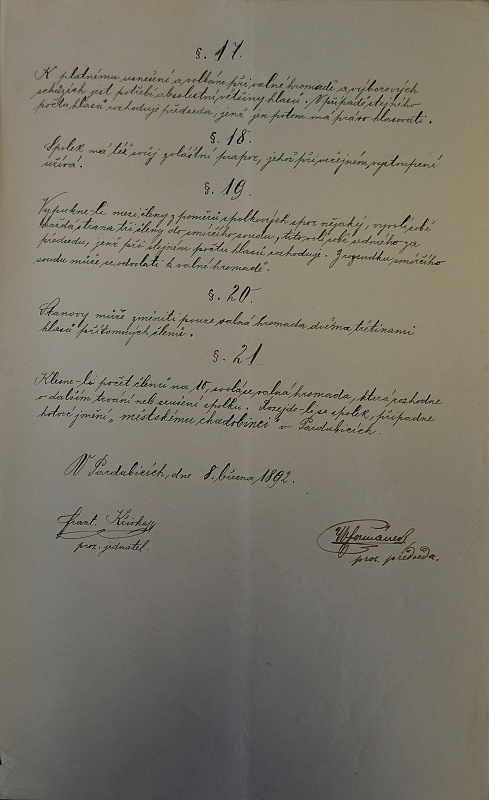 §. 17.
K platnému usnešení a volbám při valné hromadě a výborových
schůzích jest potřebí absolutní většiny hlasů. V případě stejného
počtu hlasů rozhoduje předseda, jenž jen potom má právo hlasovati.
§. 18.
Spolek má též svůj zvláštní prapor, jehož při veřejném vystoupení
užívá.
§. 19
Vypukne-li mezi členy z poměrů spolkových spor nějaký, vyvolí sobě
každá strana tři členy do smírčího soudu, tito volí sobě jednoho za
předsedu, jenž při stejném počtu hlasů rozhoduje. Z rozsudku smírčího
soudu může se odvolati k valné hromadě.
§. 20.
Stanovy může změniti pouze valná hromada dvěma třetinami
hlasů přítomných členů.
§. 21.
Klesne-li počet členů na 10, svolá se valná hromada, která rozhodne
o dalším trvání neb zrušení spolku. Rozejde-li se spolek, připadne
hotové jmění „městskému chudobinci" v Pardubicích.
V Pardubicích, dne 8. března 1892.
Frant.
proz. jednatel.
proz. předseda.